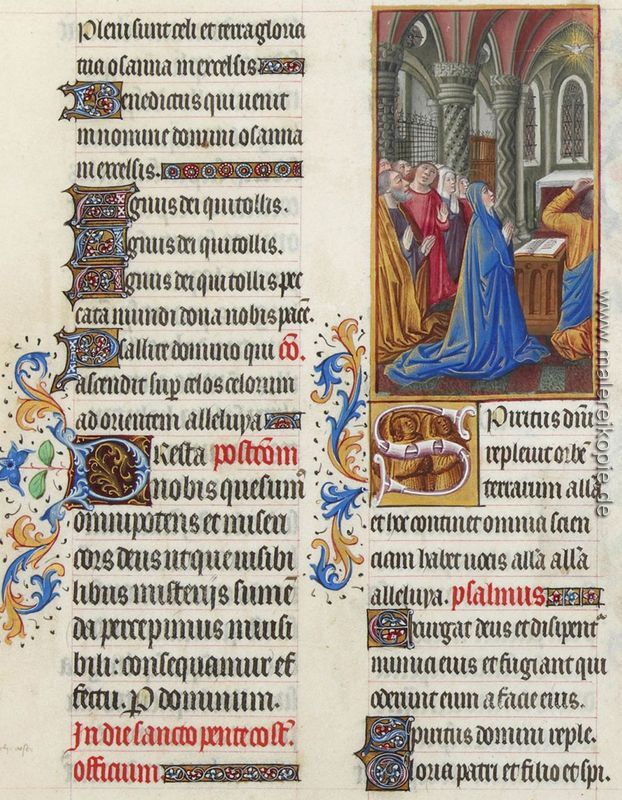 Pleni sunt celi et terra gloria
tua osanna in excelsis.
Benedictus qui uenit
in nomine domini osanna
in excelsis.
Agnus dei qui tollis.
Agnus dei qui tollis.
Agnus dei qui tollis pec
cata mundi dona nobis pacē.
Psallite domino qui cō.
ascendit sup celos celorum
ad orientem alleluya
Presta postcom
nobis quesum
omnipotens et miseri
cors deus ut que uisibi
libus misterijs sumē
da percepimus inuisi
bili: consequamur ef
fectu. P dominum.
In die sancto pentecost.
officium
Spiritus dñi
repleuit orbē
terrarum alla
et hoc continet omnia scien
ciam habet uocis alla alla
alleluya. psalmus
Exurgat deus et disipent
inimici eius et fugiant qui
oderunt eum a facie eius.
Spiritus domini reple.
Gloria patri et filio et spi.
www.malereikopie.de